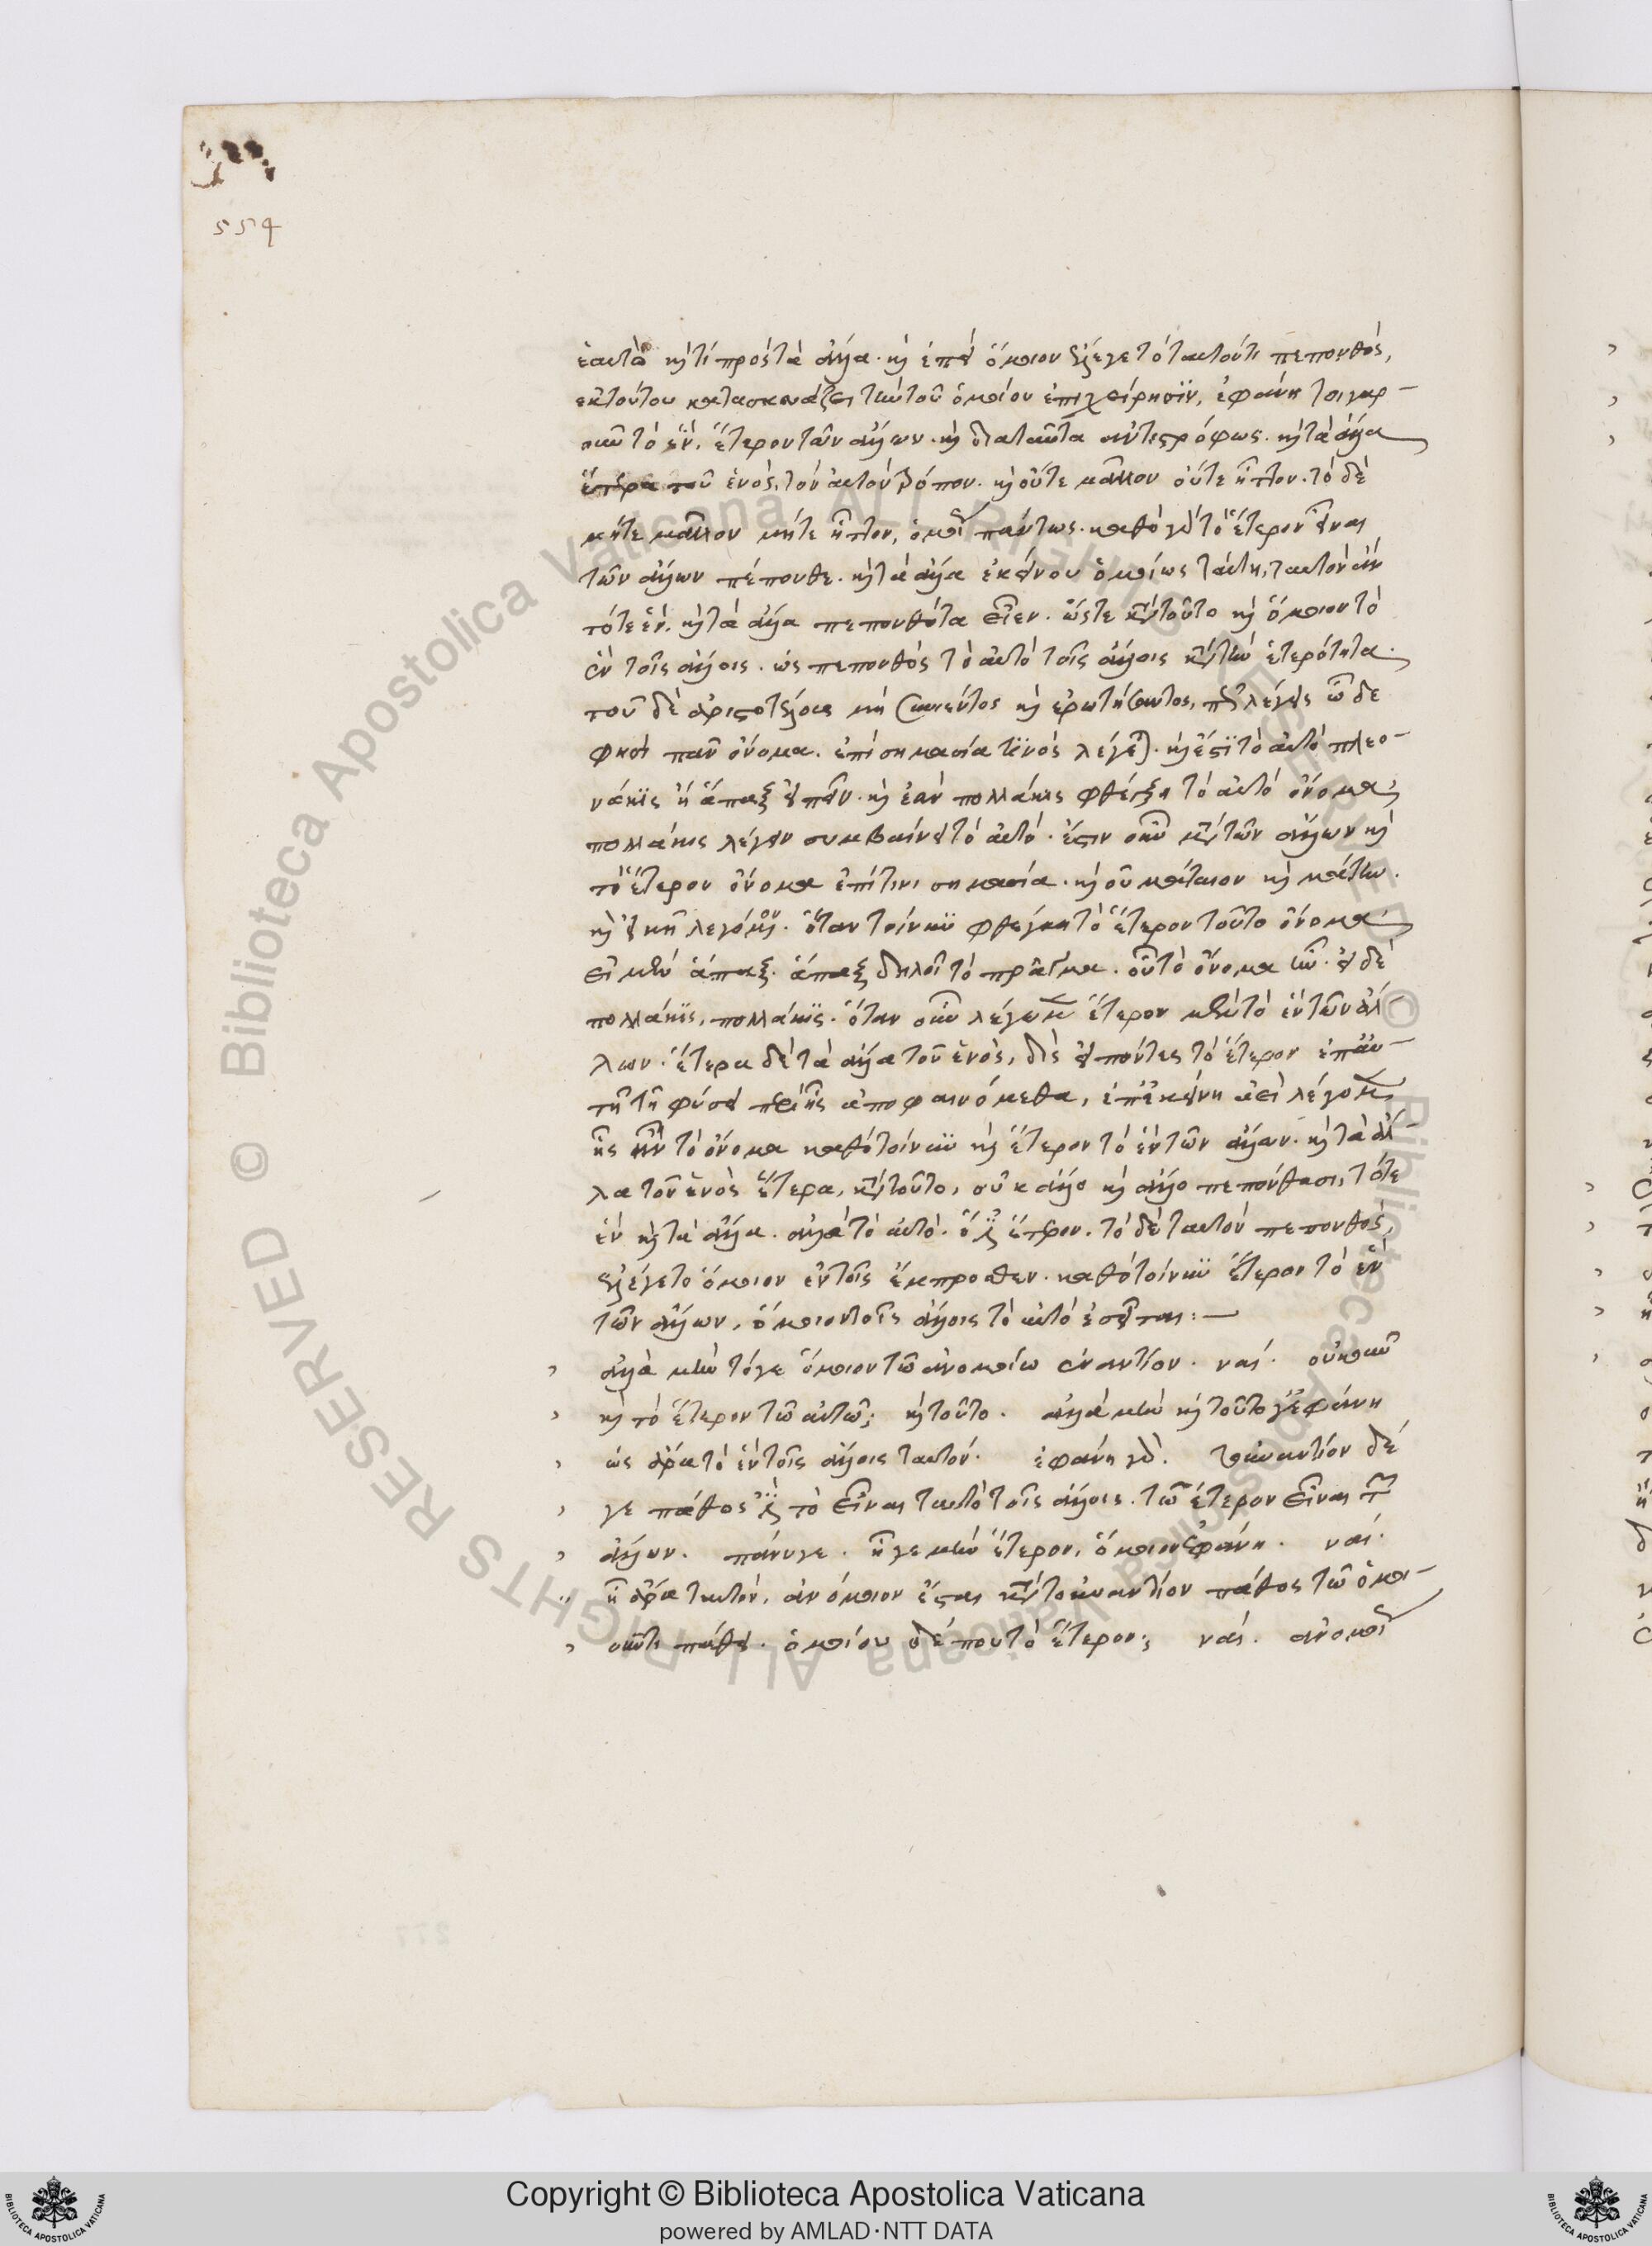 554
ἑαυτὸ καὶ τί πρὸς τὰ ἄλλα. καὶ ἐπεὶ ὅμοιον ἐλέγετο ταυτόν τι πεπονθός,
ἐκ τούτου κατασκευάζει τὴν τοῦ ὁμοίου ἐπιχείρησιν, ἐφάνη τοιγαρ-
οῦν τὸ ἓν, ἕτερον τῶν ἄλλων. καὶ διαταῦτα ἀντιστρόφως. καὶ τὰ ἄλλα
ἕτερα τοῦ ἑνὸς, τὸν αὐτὸν τρόπον. καὶ οὔτε μᾶλλον οὔτε ἧττον. τὸ δὲ
μήτε μᾶλλον μήτε ἧττον, ὁμοίως πάντως. καθὸ γὰρ τὸ ἕτερον εἶναι
τῶν ἄλλων πέπονθε. καὶ τὰ ἄλλα ἐκείνου ὁμοίως ταύτη, ταυτὸν ἂν
τότε ἓν. καὶ τὰ ἄλλα πεπονθότα εἶεν. ὥστε κατὰ τοῦτο καὶ ὅμοιον τὸ
ἓν τοῖς ἄλλοις. ὡς πεπονθὸς τὸ αὐτὸ τοῖς ἄλλοις κατὰ τὴν ἑτερότητα.
τοῦ δὲ ἀριστοτέλους μὴ συνιέντος καὶ ἐρωτήσαντος, πῶς λέγεις ὧδε
φησὶ πᾶν ὄνομα. ἐπὶ σημασία τινὸς λέγεται. καὶ ἔστι τὸ αὐτὸ πλεο-
νάκις ἢ ἅπαξ εἰπεῖν. καὶ ἐὰν πολλάκις φθέγξη τὸ αὐτὸ ὄνομα,
πολλάκις λέγειν συμβαίνει τὸ αὐτό. ἔστιν οὖν κατὰ τῶν ἄλλων καὶ
τὸ ἕτερον ὄνομα ἐπί τινι σημασία. καὶ οὐ μάταιον καὶ μάτην.
καὶ εἰκῆ λεγόμενον. ὅταν τοίνυν φθεγγη τὸ ἕτερον τοῦτο ὄνομα
εἰ μὲν ἅπαξ. ἅπαξ δηλοῖ τὸ πρᾶγμα. οὗ τὸ ὄνομα ἦν. εἰ δὲ
πολλάκις, πολλάκις. ὅταν οὖν λέγωμεν ἕτερον μὲν τὸ ἓν τῶν ἄλ-
λων. ἕτερα δὲ τὰ ἄλλα τοῦ ἑνὸς, δὶς εἰπόντες τὸ ἕτερον ἐπ' αὐ-
τῆ τῆ φύσει περὶ ἧς ἀποφαινόμεθα, ἐπ' ἐκείνη ἀεὶ λέγομεν
ἧς ἦν τὸ ὄνομα καθὸ τοίνυν καὶ ἕτερον τὸ ἓν τῶν ἄλλων. καὶ τὰ ἄλ-
λα τοῦ ἑνὸς ἕτερα, κατὰ τοῦτο, οὐκ ἄλλο καὶ ἄλλο πεπόνθασι, τότε
ἓν καὶ τὰ ἄλλα. ἀλλὰ τὸ αὐτό. ὅ ἐστιν ἕτερον. τὸ δὲ ταυτὸν πεπονθὸς,
ἐλέγετο ὅμοιον ἐν τοῖς ἔμπροσθεν. καθὸ τοίνυν ἕτερον τὸ ἓν
τῶν ἄλλων, ὅμοιον τοῖς ἄλλοις τὸ αὐτὸ ἐσεῖται:—
ἀλλὰ μὴν τόγε ὅμοιον τῶ ἀνομοίω ἐναντίον. ναί. οὐκοῦν
καὶ τὸ ἕτερον τῶ αὐτῶ; καὶ τοῦτο. ἀλλὰ μὴν καὶ τοῦτο γ' ἐφάνη
ὡς ἄρα τὸ ἓν τοῖς ἄλλοις ταυτόν. ἐφάνη γάρ. τοὐναντίον δέ
γε πάθος ἐστὶ τὸ εἶναι ταυτὸ τοῖς ἄλλοις. τῶ ἕτερον εἶναι τῶν
ἄλλων. πάνυγε. ἧ γε μὴν ἕτερον, ὅμοιον ἐφάνη. ναί.
ἧ ἄρα ταυτὸν, ἀνόμοιον ἔσται κατὰ τοὐναντίον πάθος τῶ ὁμοι-
οῦντι πάθει. ὁμοίου δέ που τὸ ἕτερον; ναί. ἀνομοι